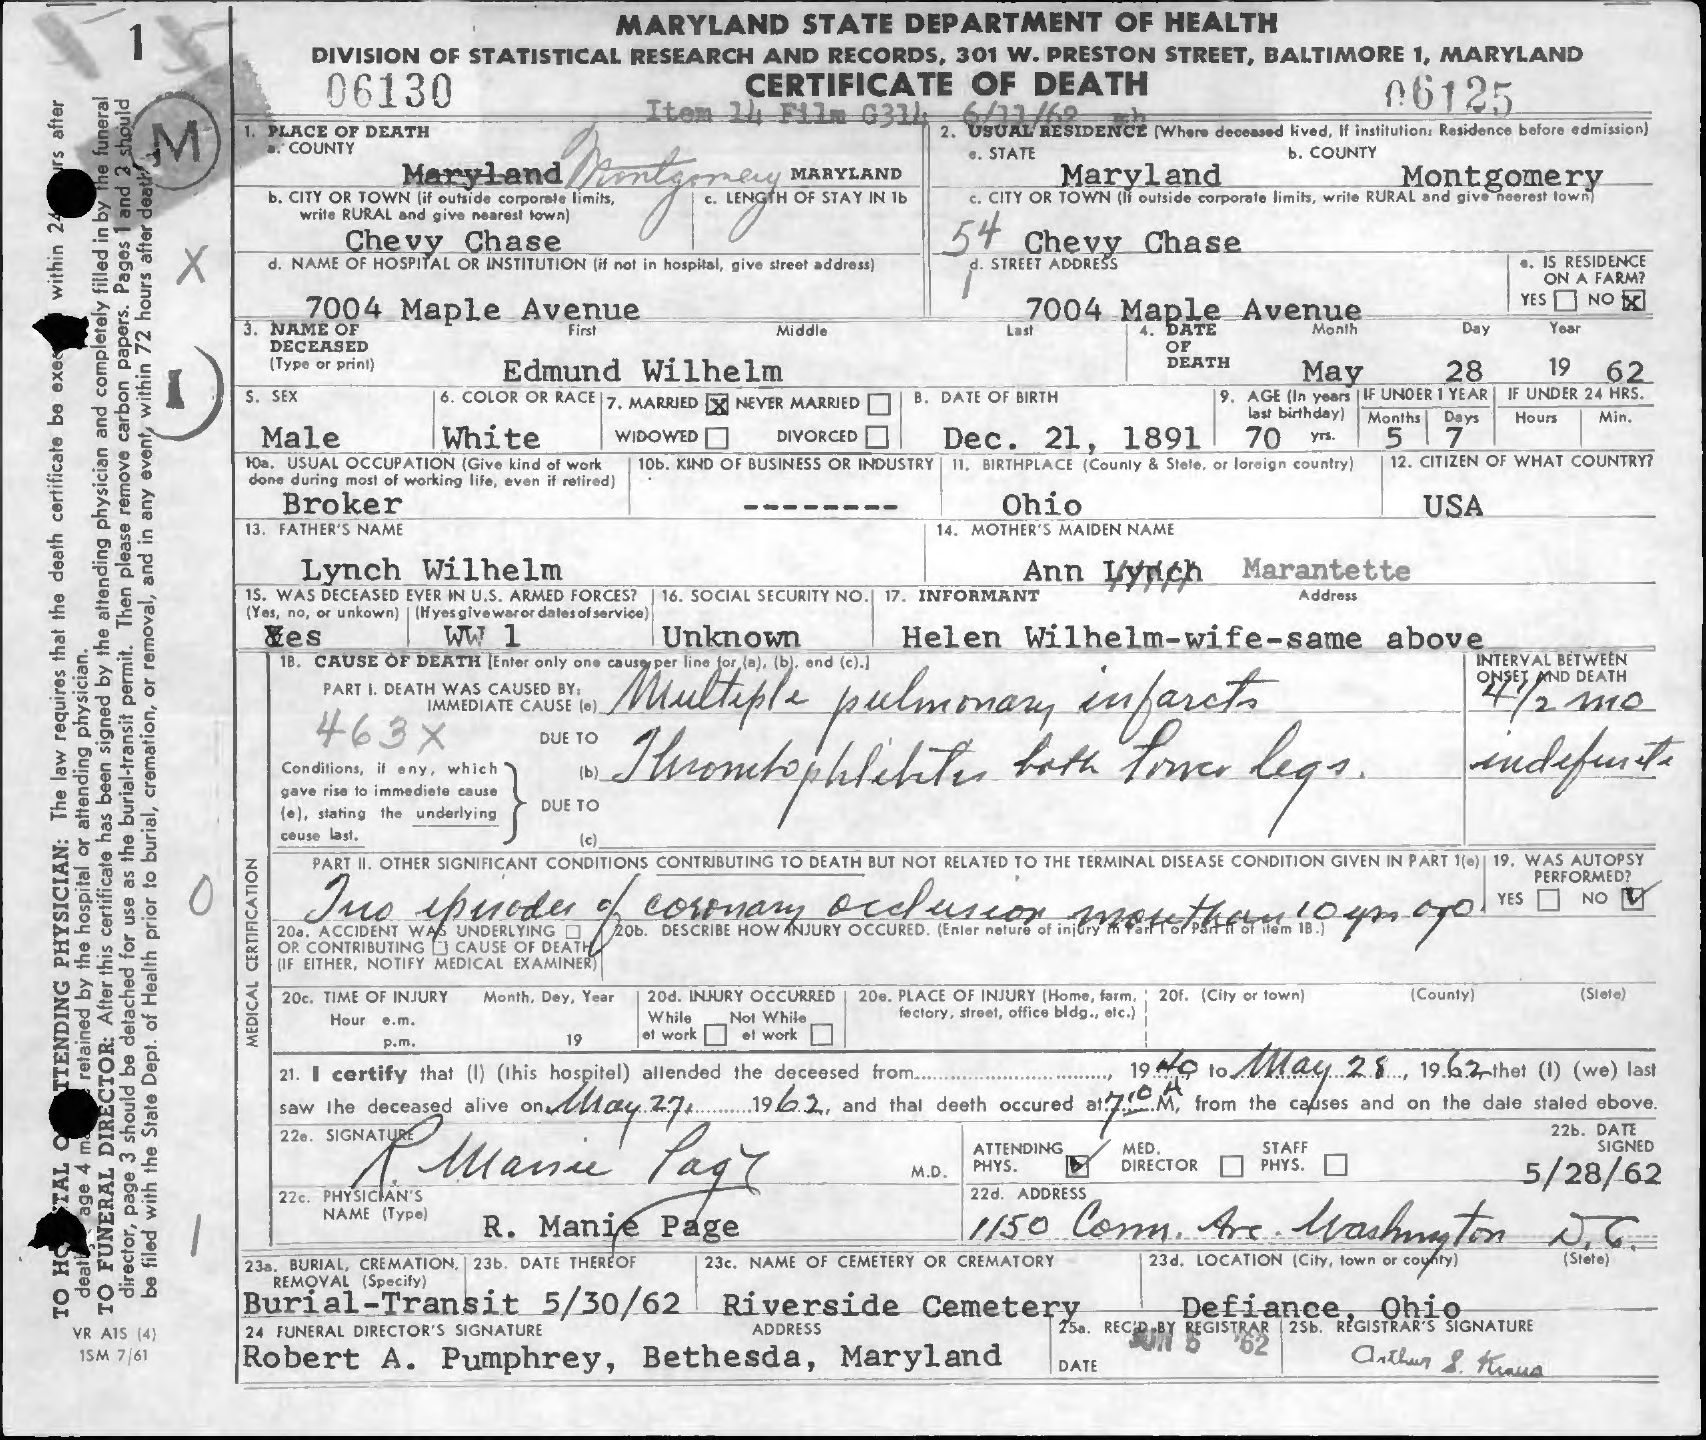 1
MARYLAND STATE DEPARTMENT OF HEALTH
DIVISION OF STATISTICAL RESEARCH AND RECORDS, 301 W. PRESTON STREET, BALTIMORE 1, MARYLAND
06130 CERTIFICATE OF DEATH 06125
Item 14 Film G314 6/11/62 mh
M
1. PLACE OF DEATH
a. COUNTY
Maryland Montgomery MARYLAND
2. USUAL RESIDENCE (Where deceased lived, If institution: Residence before admission)
a. STATE b. COUNTY
Maryland Montgomery
b. CITY OR TOWN (if outside corporate limits, write RURAL and give nearest town)
Chevy Chase
c. LENGTH OF STAY IN 1b
c. CITY OR TOWN (If outside corporate limits, write RURAL and give nearest town)
54 Chevy Chase
X
d. NAME OF HOSPITAL OR INSTITUTION (if not in hospital, give street address)
7004 Maple Avenue
d. STREET ADDRESS
1
7004 Maple Avenue
e. IS RESIDENCE ON A FARM?
YES NO X
3. NAME OF DECEASED
(Type or print)
First Middle Last
Edmund Wilhelm
4. DATE OF DEATH
Month Day Year
May 28 19 62
I
5. SEX
Male
6. COLOR OR RACE
White
7. MARRIED X NEVER MARRIED
WIDOWED DIVORCED
8. DATE OF BIRTH
Dec. 21, 1891
9. AGE (In years last birthday)
70 yrs.
IF UNDER 1 YEAR
Months Days
5 7
IF UNDER 24 HRS.
Hours Min.
10a. USUAL OCCUPATION (Give kind of work done during most of working life, even if retired)
Broker
10b. KIND OF BUSINESS OR INDUSTRY
--------
11. BIRTHPLACE (County & State, or foreign country)
Ohio
12. CITIZEN OF WHAT COUNTRY?
USA
13. FATHER'S NAME
Lynch Wilhelm
14. MOTHER'S MAIDEN NAME
Ann Lynch Marantette
15. WAS DECEASED EVER IN U.S. ARMED FORCES?
(Yes, no, or unkown) (If yes give war or dates of service)
Yes WW 1
16. SOCIAL SECURITY NO.
Unknown
17. INFORMANT Address
Helen Wilhelm-wife-same above
MEDICAL CERTIFICATION
18. CAUSE OF DEATH [Enter only one cause per line for (a), (b), and (c).]
INTERVAL BETWEEN ONSET AND DEATH
PART I. DEATH WAS CAUSED BY:
IMMEDIATE CAUSE (a) Multiple pulmonary infarcts 4 1/2 mo
463X
DUE TO
(b) Thrombophlebitis both lower legs. indefinite
Conditions, if any, which gave rise to immediate cause (a), stating the underlying cause last.
DUE TO
(c)
PART II. OTHER SIGNIFICANT CONDITIONS CONTRIBUTING TO DEATH BUT NOT RELATED TO THE TERMINAL DISEASE CONDITION GIVEN IN PART 1(a)
Two episodes of coronary occlusion more than 10 yrs ago
19. WAS AUTOPSY PERFORMED?
YES NO
0
20a. ACCIDENT WAS UNDERLYING
OR CONTRIBUTING CAUSE OF DEATH
(IF EITHER, NOTIFY MEDICAL EXAMINER)
20b. DESCRIBE HOW INJURY OCCURED. (Enter nature of injury in Part I or Part II of item 18.)
20c. TIME OF INJURY Month, Day, Year
Hour a.m.
p.m. 19
20d. INJURY OCCURRED
While at work Not While at work
20e. PLACE OF INJURY (Home, farm, factory, street, office bldg., etc.)
20f. (City or town) (County) (State)
21. I certify that (I) (this hospital) attended the deceased from......, 1940, to May 28, 1962, that (I) (we) last
saw the deceased alive on May 27, 1962, and that death occured at 7:10 A M, from the causes and on the date stated above.
22a. SIGNATURE
R. Manie Page M.D.
ATTENDING PHYS. MED. DIRECTOR STAFF PHYS.
22b. DATE SIGNED
5/28/62
22c. PHYSICIAN'S NAME (Type)
R. Manie Page
22d. ADDRESS
1150 Conn. Ave. Washington D.C.
1
23a. BURIAL, CREMATION, REMOVAL (Specify)
Burial-Transit
23b. DATE THEREOF
5/30/62
23c. NAME OF CEMETERY OR CREMATORY
Riverside Cemetery
23d. LOCATION (City, town or county) (State)
Defiance, Ohio
24 FUNERAL DIRECTOR'S SIGNATURE ADDRESS
Robert A. Pumphrey, Bethesda, Maryland
25a. REC'D BY REGISTRAR
DATE JUN 5 '62
25b. REGISTRAR'S SIGNATURE
Arthur S. Kraus
TO HOSPITAL OR ATTENDING PHYSICIAN: The law requires that the death certificate be executed within 24 hours after
death. Page 4 may be retained by the hospital or attending physician.
TO FUNERAL DIRECTOR: After this certificate has been signed by the attending physician and completely filled in by the funeral
director, page 3 should be detached for use as the burial-transit permit. Then please remove carbon papers. Pages 1 and 2 should
be filed with the State Dept. of Health prior to burial, cremation, or removal, and in any event, within 72 hours after death.
VR A1S (4)
15M 7/61